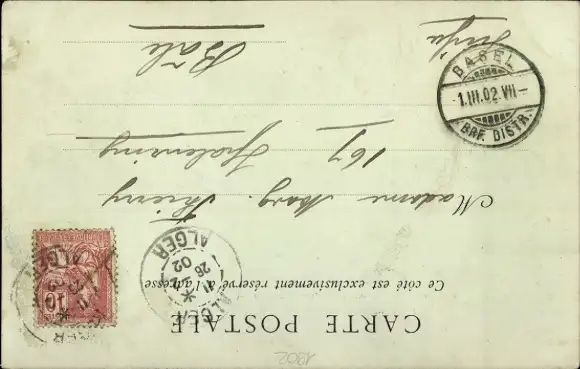 CARTE POSTALE
Ce côté est exclusivement réservé à l'adresse
Madame Marg. Thierry
167
Bâle
BASEL
1.III.02.VII-
BRF. DISTR.
ALGER
26
02
ALGER
ALGER
10
1902